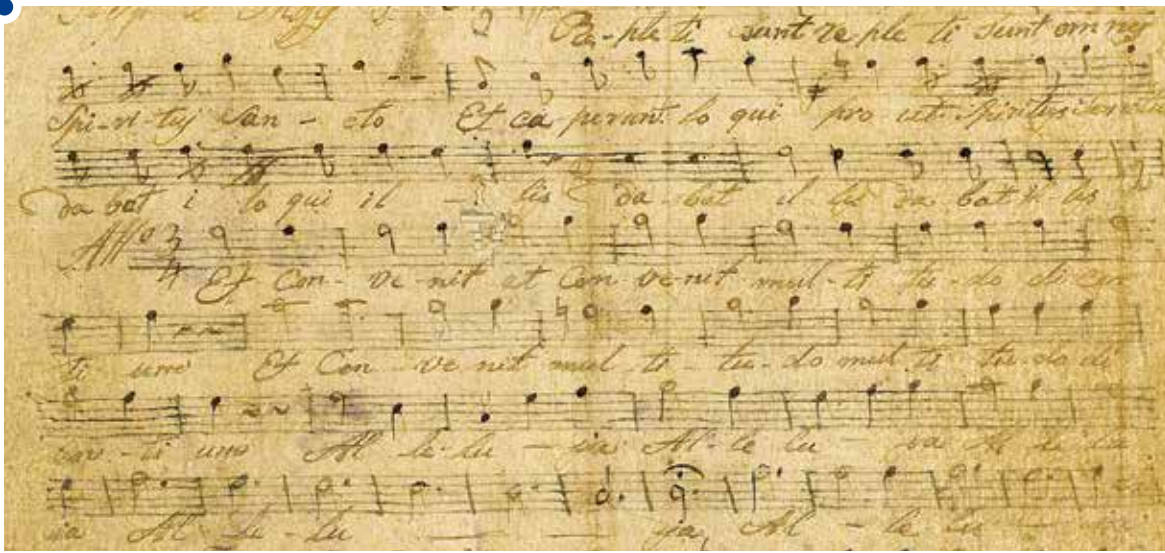 Re-ple ti sunt re ple ti sunt omnes
Spi-ri-tuj San-cto Et cæ perunt lo qui pro ut Spiritus
da bat i lo qui il - lis da-bat il lis da bat il-lis
All° 3/4 Et Con-ve-nit et Con ve-nit mul-ti tu-do di
ti uno Et Con ve nit mul ti-tu-do mul ti tu-do di
cor-ti uno Al le-lu-ia Al-le lu-ia Al le lu
ia Al-le-lu - ja, Al-le lu